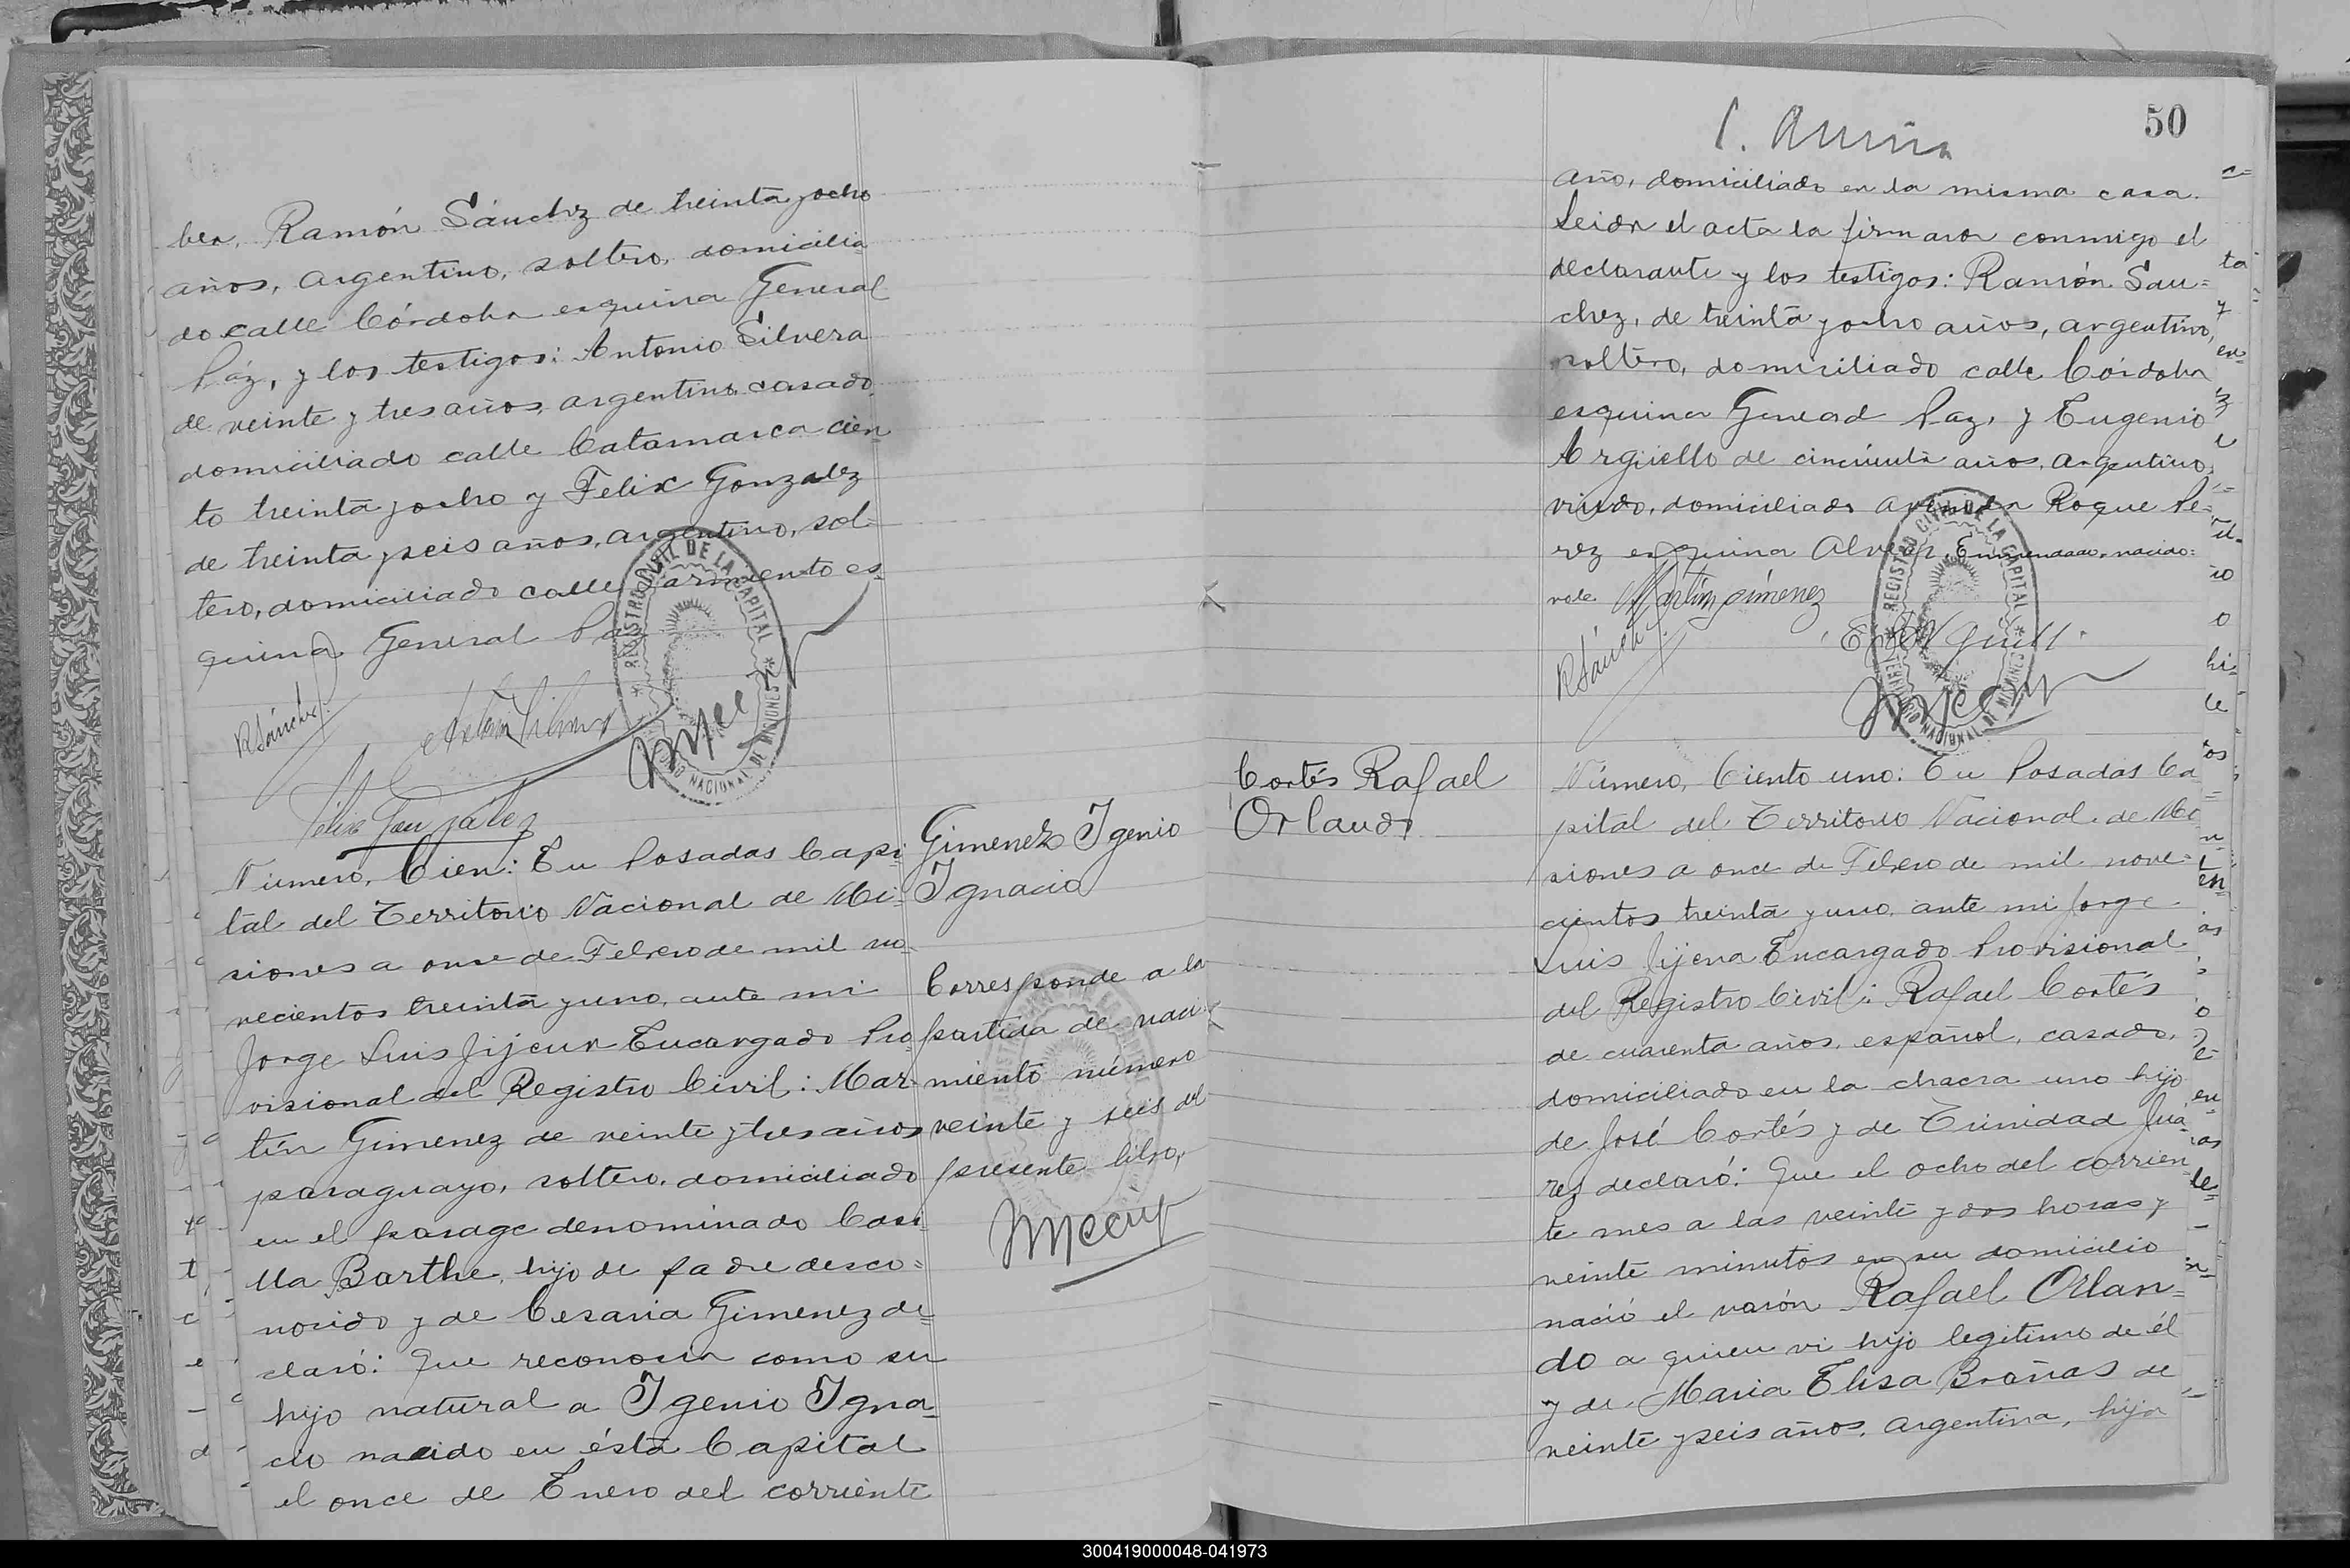 bea, Ramón Sánchez de treinta y ocho
años, argentino, soltero, domicilia
do calle Córdoba esquina General
Páz, y los testigos: Antonio Silvera
de veinte y tres años, argentino, casado,
domiciliado calle Catamarca cien
to treinta y ocho y Felix Gonzalez
de treinta y seis años, argentino, sol=
tero, domiciliado calle Sarmiento es=
quina General Paz
REGISTRO CIVIL DE LA CAPITAL
NACIONAL DE MISIONES
RSánchez
Felix González
Gimenez Igenio
Ignacio
Número, Cien: En Posadas Capi
tal del Territorio Nacional de Mi=
siones a once de Febrero de mil no=
vecientos treinta y uno, ante mi
Jorge Luis Jijena Encargado Pro
visional del Registro Civil: Mar
tín Gimenez de veinte y tres años
paraguayo, soltero, domiciliado
en el pasage denominado Casi=
lla Barthe, hijo de padre desco=
nocido y de Cesaria Gimenez de=
claró: Que reconocia como su
hijo natural a Igenio Igna=
cio nacido en ésta Capital
el once de Enero del corriente
Corresponde a la
partida de naci
miento número
veinte y seis del
presente libro,
50
año, domiciliado en la misma casa.
Leida el acta la firmaron conmigo el
declarante y los testigos: Ramón San=
chez, de treinta y ocho años, argentino,
soltero, domiciliado calle Córdoba
esquina General Paz, y Eugenio
Argüello de cincuenta años, argentino,
viudo, domiciliado avenida Roque Pe=
rez esquina Alvear, Enmendado, nacido:
vale. Martin Jiménez
RSánchez
REGISTRO CIVIL DE LA CAPITAL
NACIONAL DE MISIONES
Cortés Rafael
Orlando
Número, Ciento uno: En Posadas Ca
pital del Territorio Nacional de Mi
siones a once de Febrero de mil nove=
cientos treinta y uno, ante mi Jorge
Luis Jijena Encargado Provisional
del Registro Civil: Rafael Cortés
de cuarenta años, español, casado,
domiciliado en la chacra uno hijo
de José Cortés y de Trinidad Juá
rez declaró: Que el ocho del corrien
te mes a las veinte y dos horas y
veinte minutos en su domicilio
nació el varón Rafael Orlan=
do a quien vi hijo legitimo de él
y de Maria Elisa Brañas de
veinte y seis años, argentina, hija
300419000048-041973